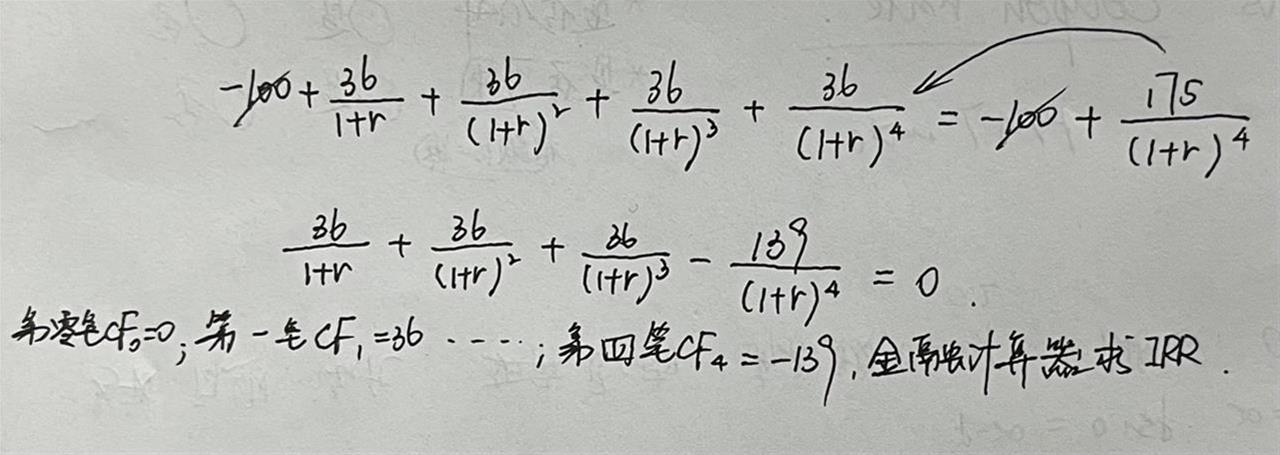 -100 + 36/(1+r) + 36/(1+r)² + 36/(1+r)³ + 36/(1+r)⁴ = -100 + 175/(1+r)⁴
36/(1+r) + 36/(1+r)² + 36/(1+r)³ - 139/(1+r)⁴ = 0.
第零笔CF₀=0; 第一笔CF₁=36 ·····; 第四笔CF₄=-139, 金融计算器求IRR.